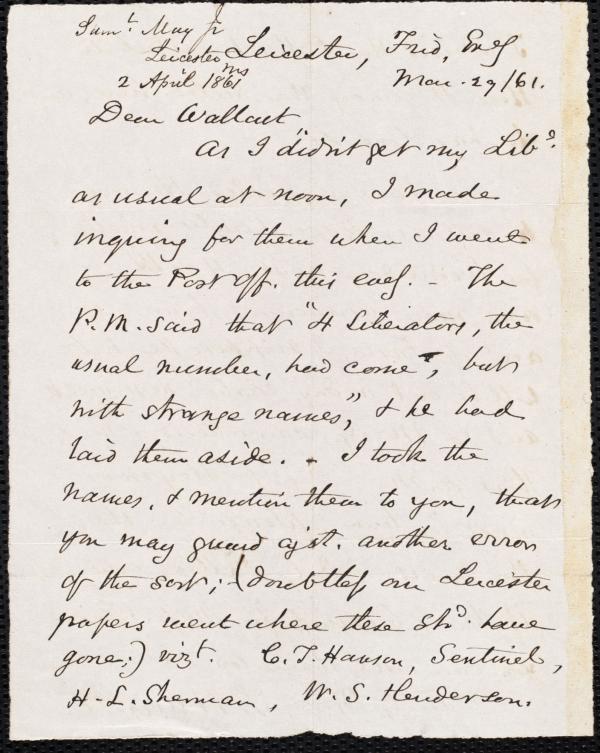 Saml. May Jr
Leicester Leicester, Frid, Eveg
2 April 1861 Mar. 29/61.
Dear Wallcut
As I didn't get my Libs.
as usual at noon, I made
inquiry for them when I went
to the Post Off. this eveg. - The
P.M. said that "4 Liberators, the
usual number, had come, but
with strange names", & he had
laid them aside. - I took the
names, & mention them to you, that
you may guard agst. another error
of the sort; (doubtless our Leicester
papers went where these shd. have
gone;) vizt. C. T. Hanson, Sentinel,
H. L. Sherman, W. S. Henderson.